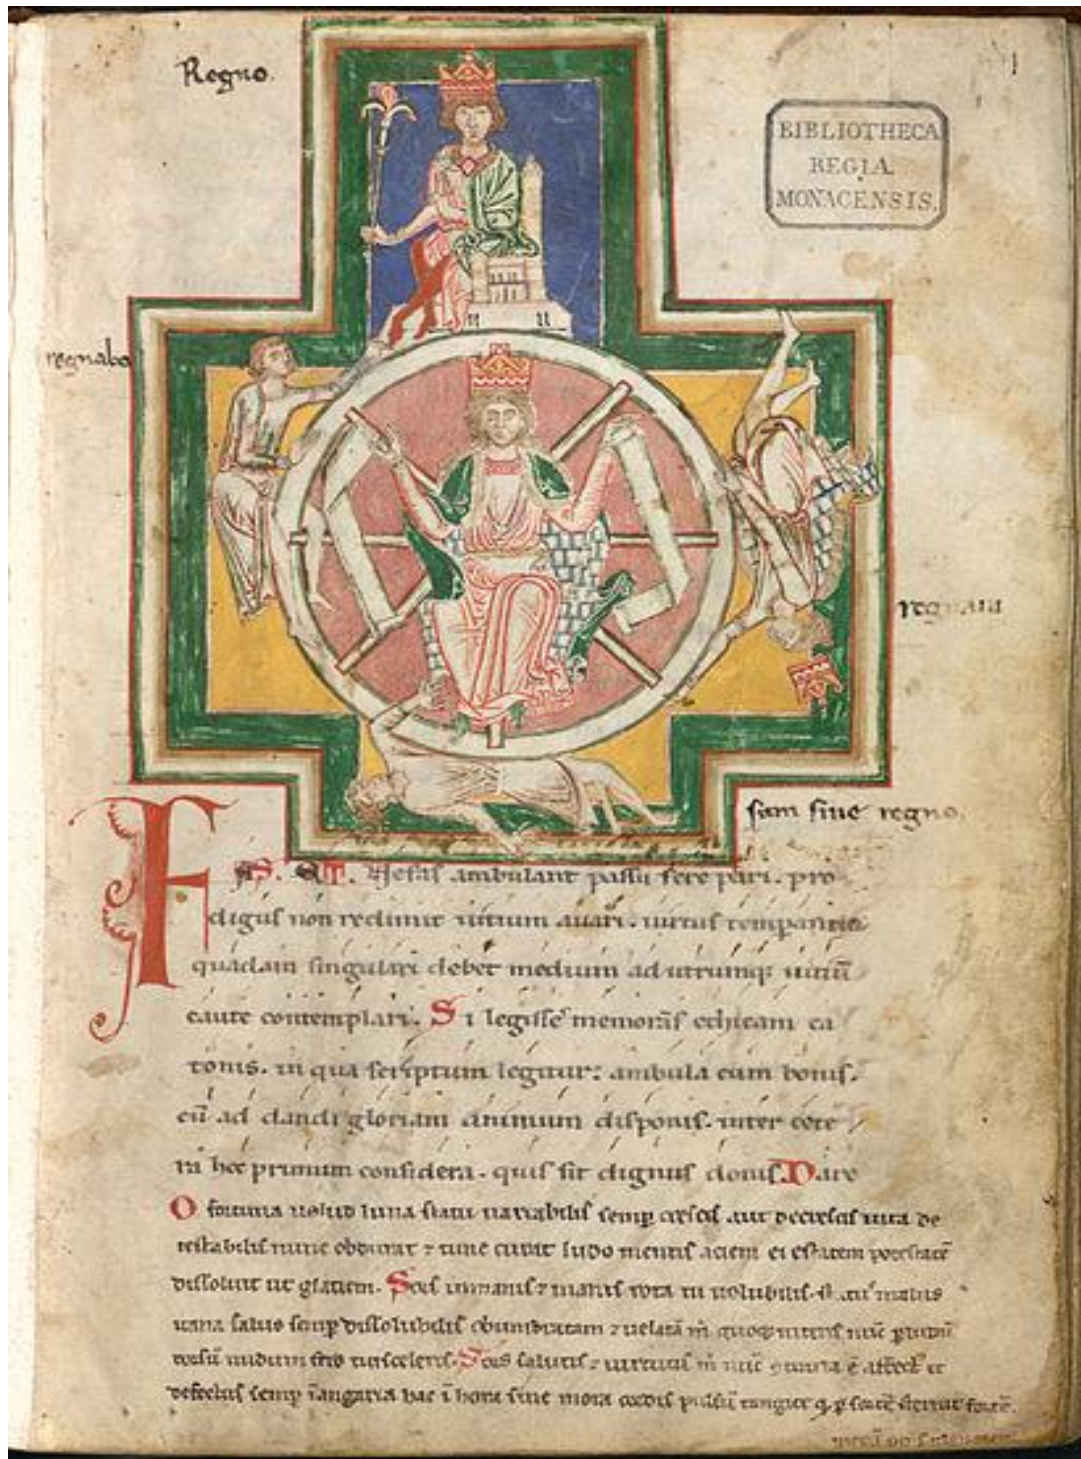 Regno.
1
BIBLIOTHECA
REGIA
MONACENSIS.
regnabo
regnaui
sum sine regno.
FAS. ET. Nefas ambulant passu fere pari. pro
digus non redimit uitium auari. uirtus temperantia
quadam singulari debet medium ad utrumq; uitiū
caute contemplari. Si legisse memoras ethicam ca
tonis. in qua scriptum legitur: ambula cum bonis.
cū ad dandi gloriam animum disponis. inter cete
ra hoc primum considera. quis sit dignus donis. Dare
O fortuna uelud luna statu uariabilis semp crescis aut decrescis uita de
testabilis nunc obdurat & tunc curat ludo mentis aciem egestatem potestatē
dissoluit ut glaciem. Sors inmanis & inanis rota tu uolubilis. status malus
uana salus semp dissolubilis obumbratam & uelatā m quoq niteris nūc p ludū
dorsū nudum fero tui sceleris. Sors salutis & uirtutis m nūc
defectus semp ī angaria hac ī hora sine mora cordis pulsū tangite q p sortē sternit fortē.